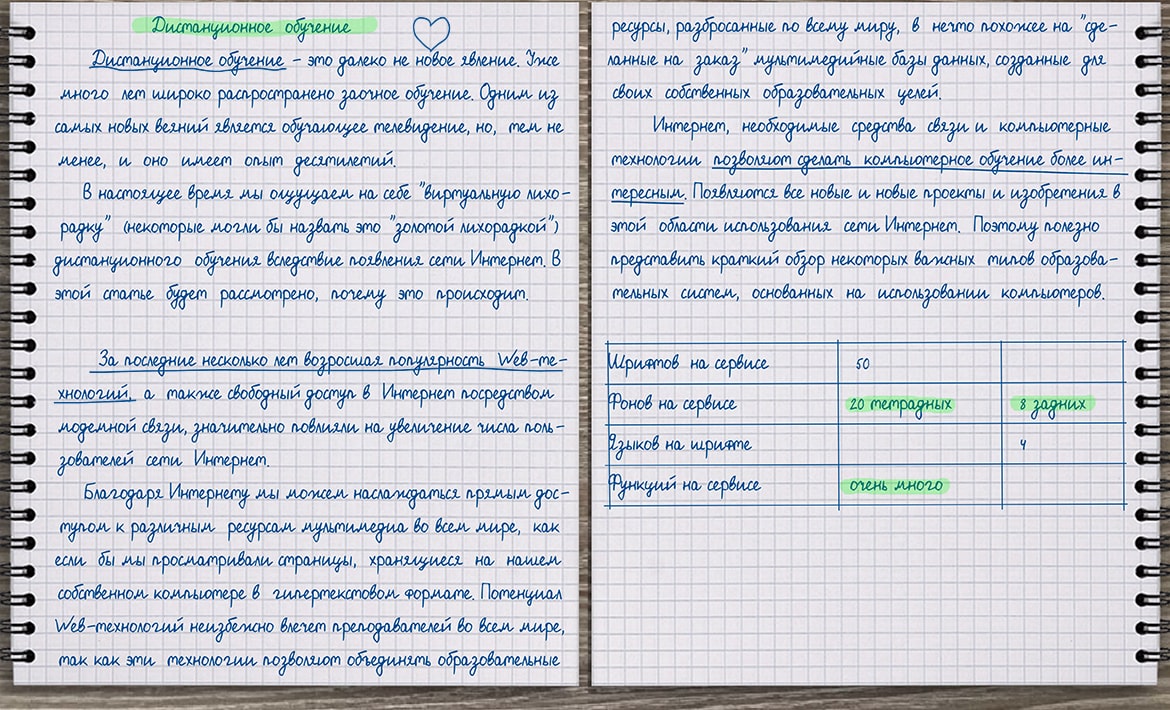 Дистанционное обучение
Дистанционное обучение – это далеко не новое явление. Уже
много лет широко распространено заочное обучение. Одним из
самых новых веяний является обучающее телевидение, но, тем не
менее, и оно имеет опыт десятилетий.
В настоящее время мы ощущаем на себе "виртуальную лихо-
радку" (некоторые могли бы назвать это "золотой лихорадкой")
дистанционного обучения вследствие появления сети Интернет. В
этой статье будет рассмотрено, почему это происходит.
За последние несколько лет возросшая популярность Web-те-
хнологий, а также свободный доступ в Интернет посредством
модемной связи, значительно повлияли на увеличение числа поль-
зователей сети Интернет.
Благодаря Интернету мы можем наслаждаться прямым дос-
тупом к различным ресурсам мультимедиа во всем мире, как
если бы мы просматривали страницы, хранящиеся на нашем
собственном компьютере в гипертекстовом формате. Потенциал
Web-технологий неизбежно влечет преподавателей во всем мире,
так как эти технологии позволяют объединять образовательные
ресурсы, разбросанные по всему миру, в нечто похожее на "сде-
ланные на заказ" мультимедийные базы данных, созданные для
своих собственных образовательных целей.
Интернет, необходимые средства связи и компьютерные
технологии позволяют сделать компьютерное обучение более ин-
тересным. Появляются все новые и новые проекты и изобретения в
этой области использования сети Интернет. Поэтому полезно
представить краткий обзор некоторых важных типов образова-
тельных систем, основанных на использовании компьютеров.
Шрифтов на сервисе 50
Фонов на сервисе 20 тетрадных 8 задних
Языков на шрифте 4
Функций на сервисе очень много